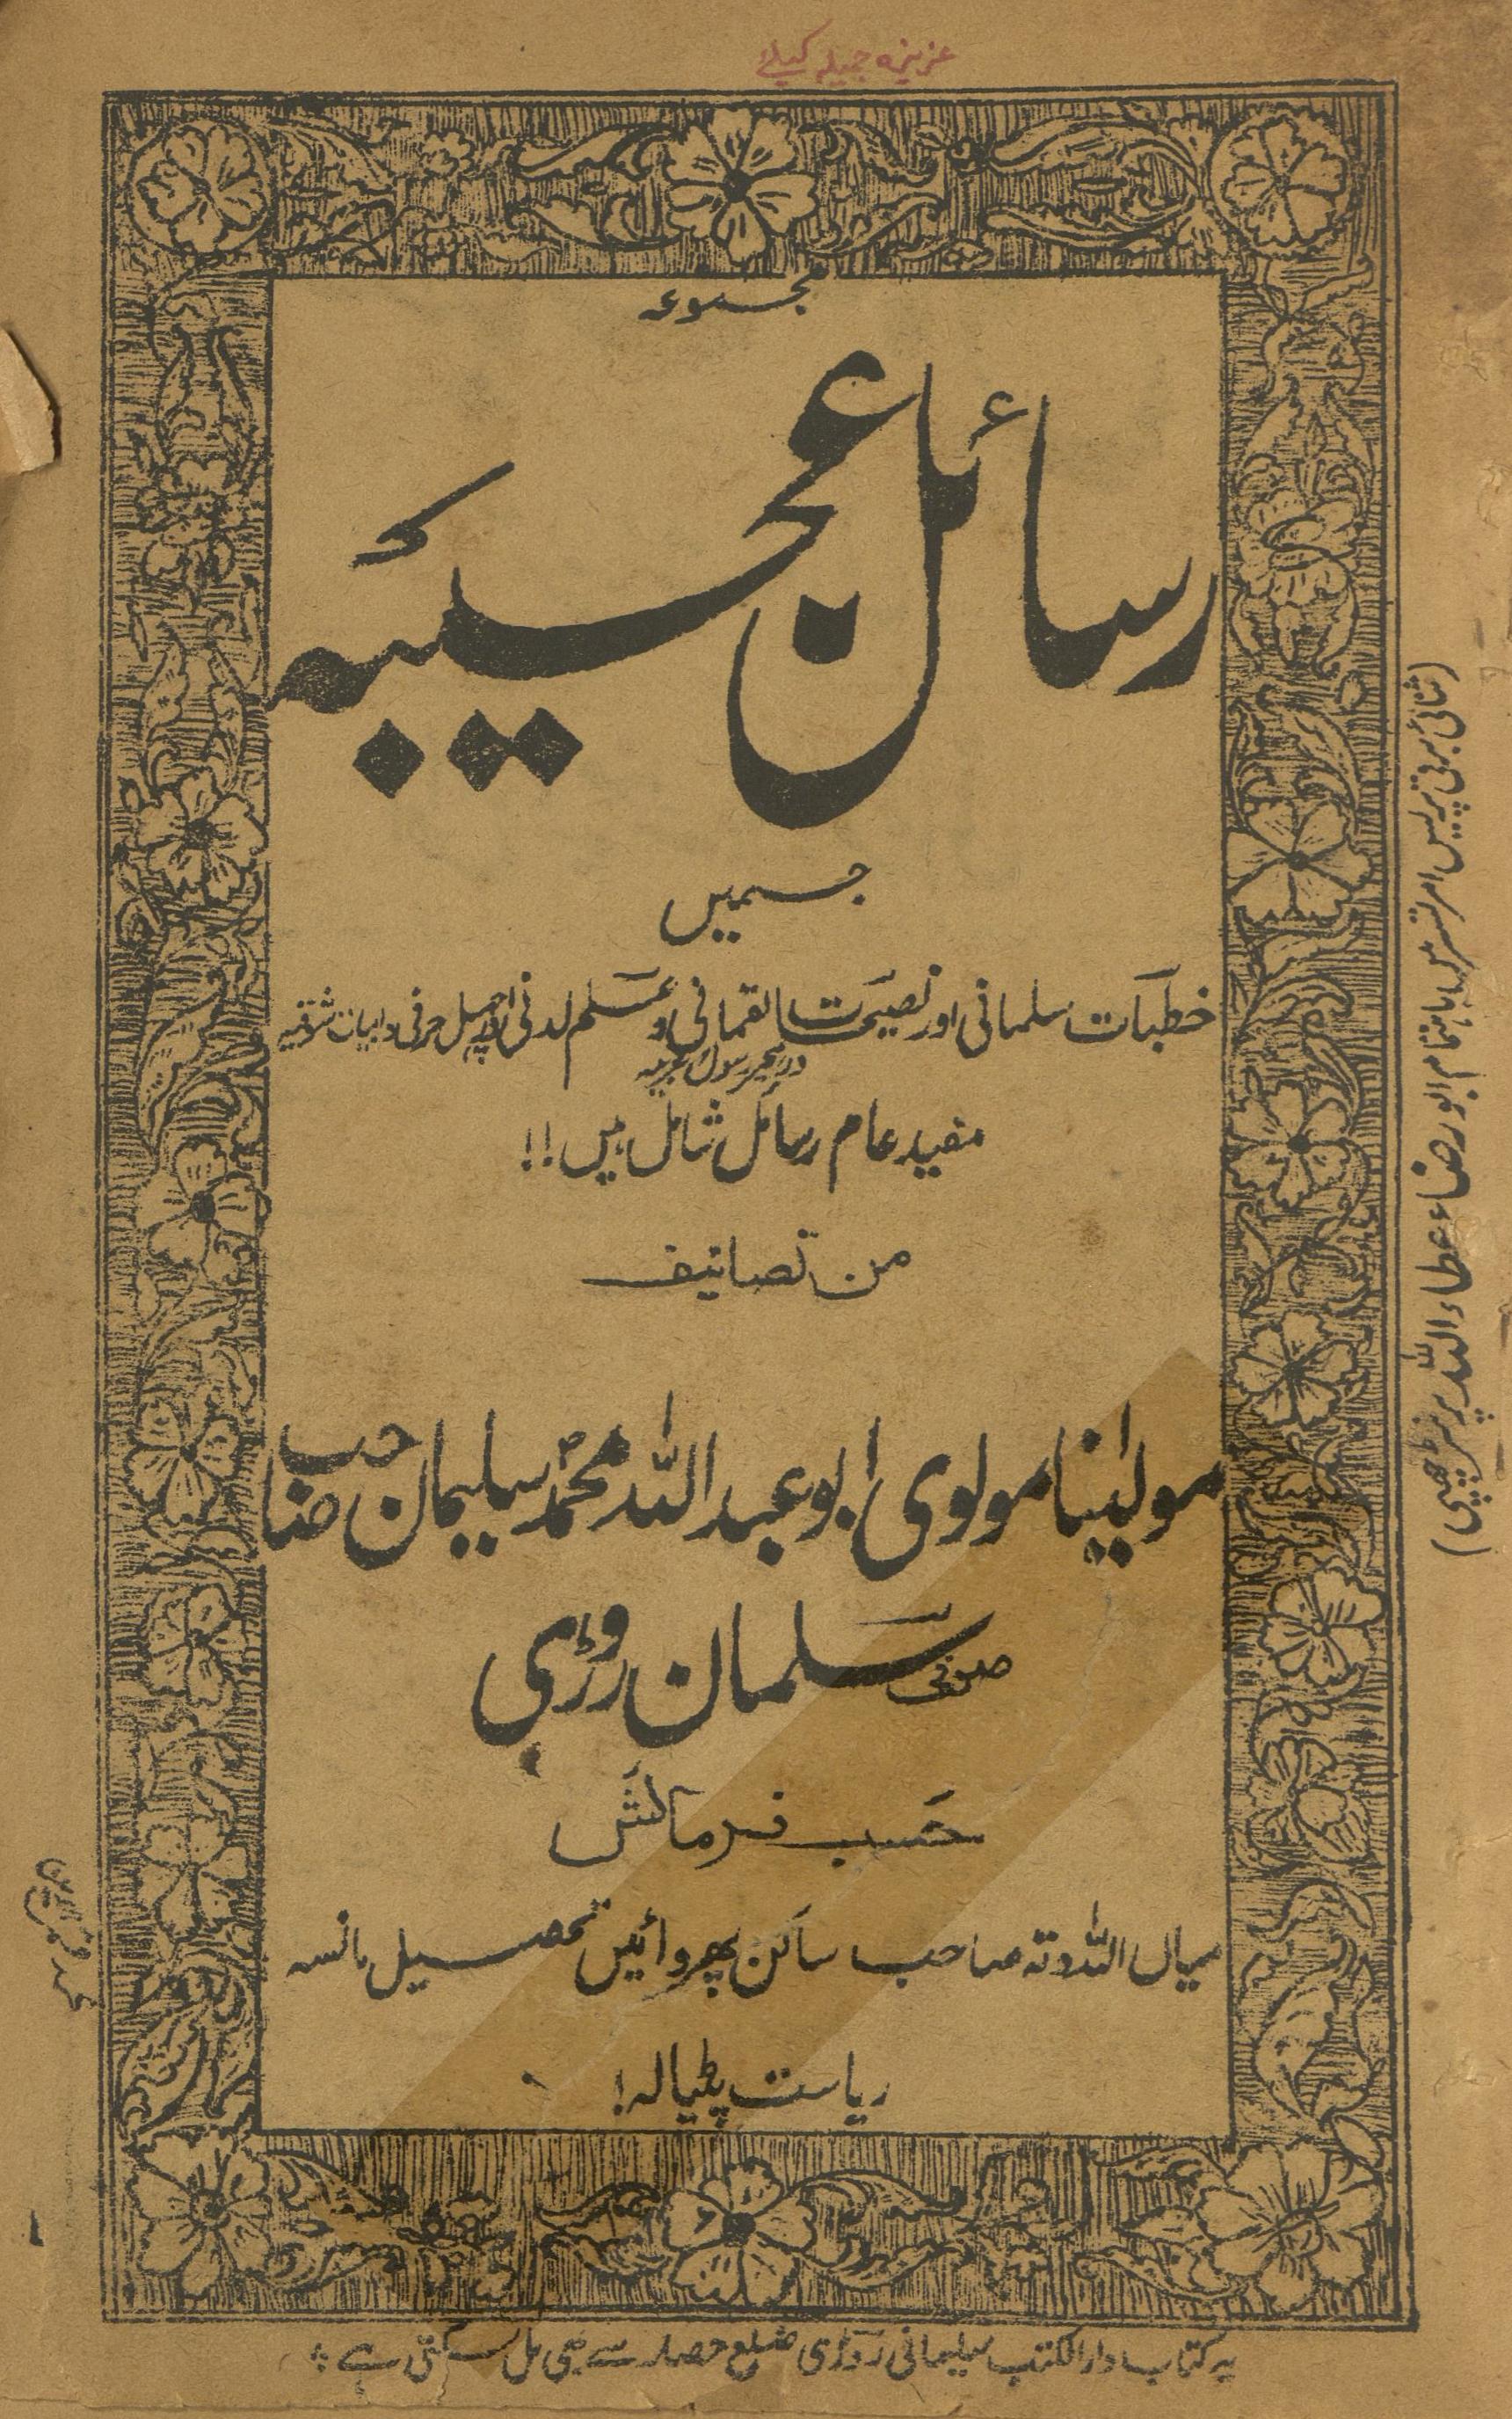 عزیزہ جمیلہ کیلئے
مجموعہ
رسائل عجیبہ
جسمیں
خطبات سلمانی اور نصیحت لقمانی و علم لدنی اور چہل حرفی و ابیات شوقیہ
در ہجر رسول عربیہ
مفید عام رسائل شامل ہیں!!
من تصانیف
مولینا مولوی ابو عبد اللہ محمد سلیمان صاحب
صوفی سلمان روڑی
حسب فرمائش
میاں اللہ دتہ صاحب ساکن پھروائیں تحصیل مانسہ
ریاست پٹیالہ!
یہ کتاب دارالکتب سلیمانی روڑی ضلع حصار سے بھی مل سکتی ہے
(ثنائی برقی پریس امرتسر میں باہتمام ابو رضاء عطاء اللہ پرنٹر چھپی)